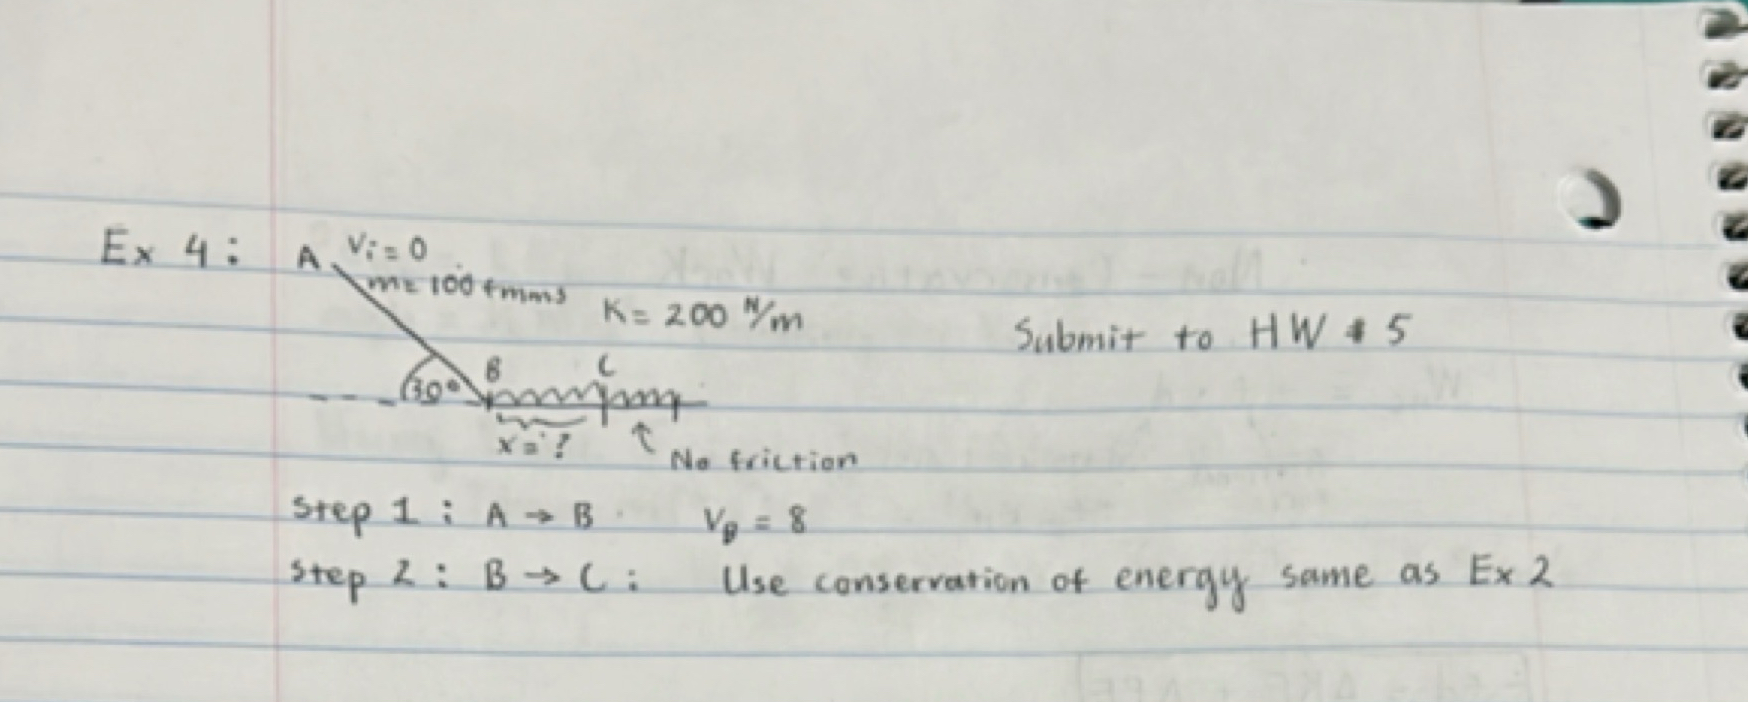 Ex 4: A Vi = 0
m= 100 grams K= 200 N/m
Submit to HW # 5
B C
30°
x = ?
No friction
Step 1: A → B VB = 8
Step 2: B → C: Use conservation of energy same as Ex 2